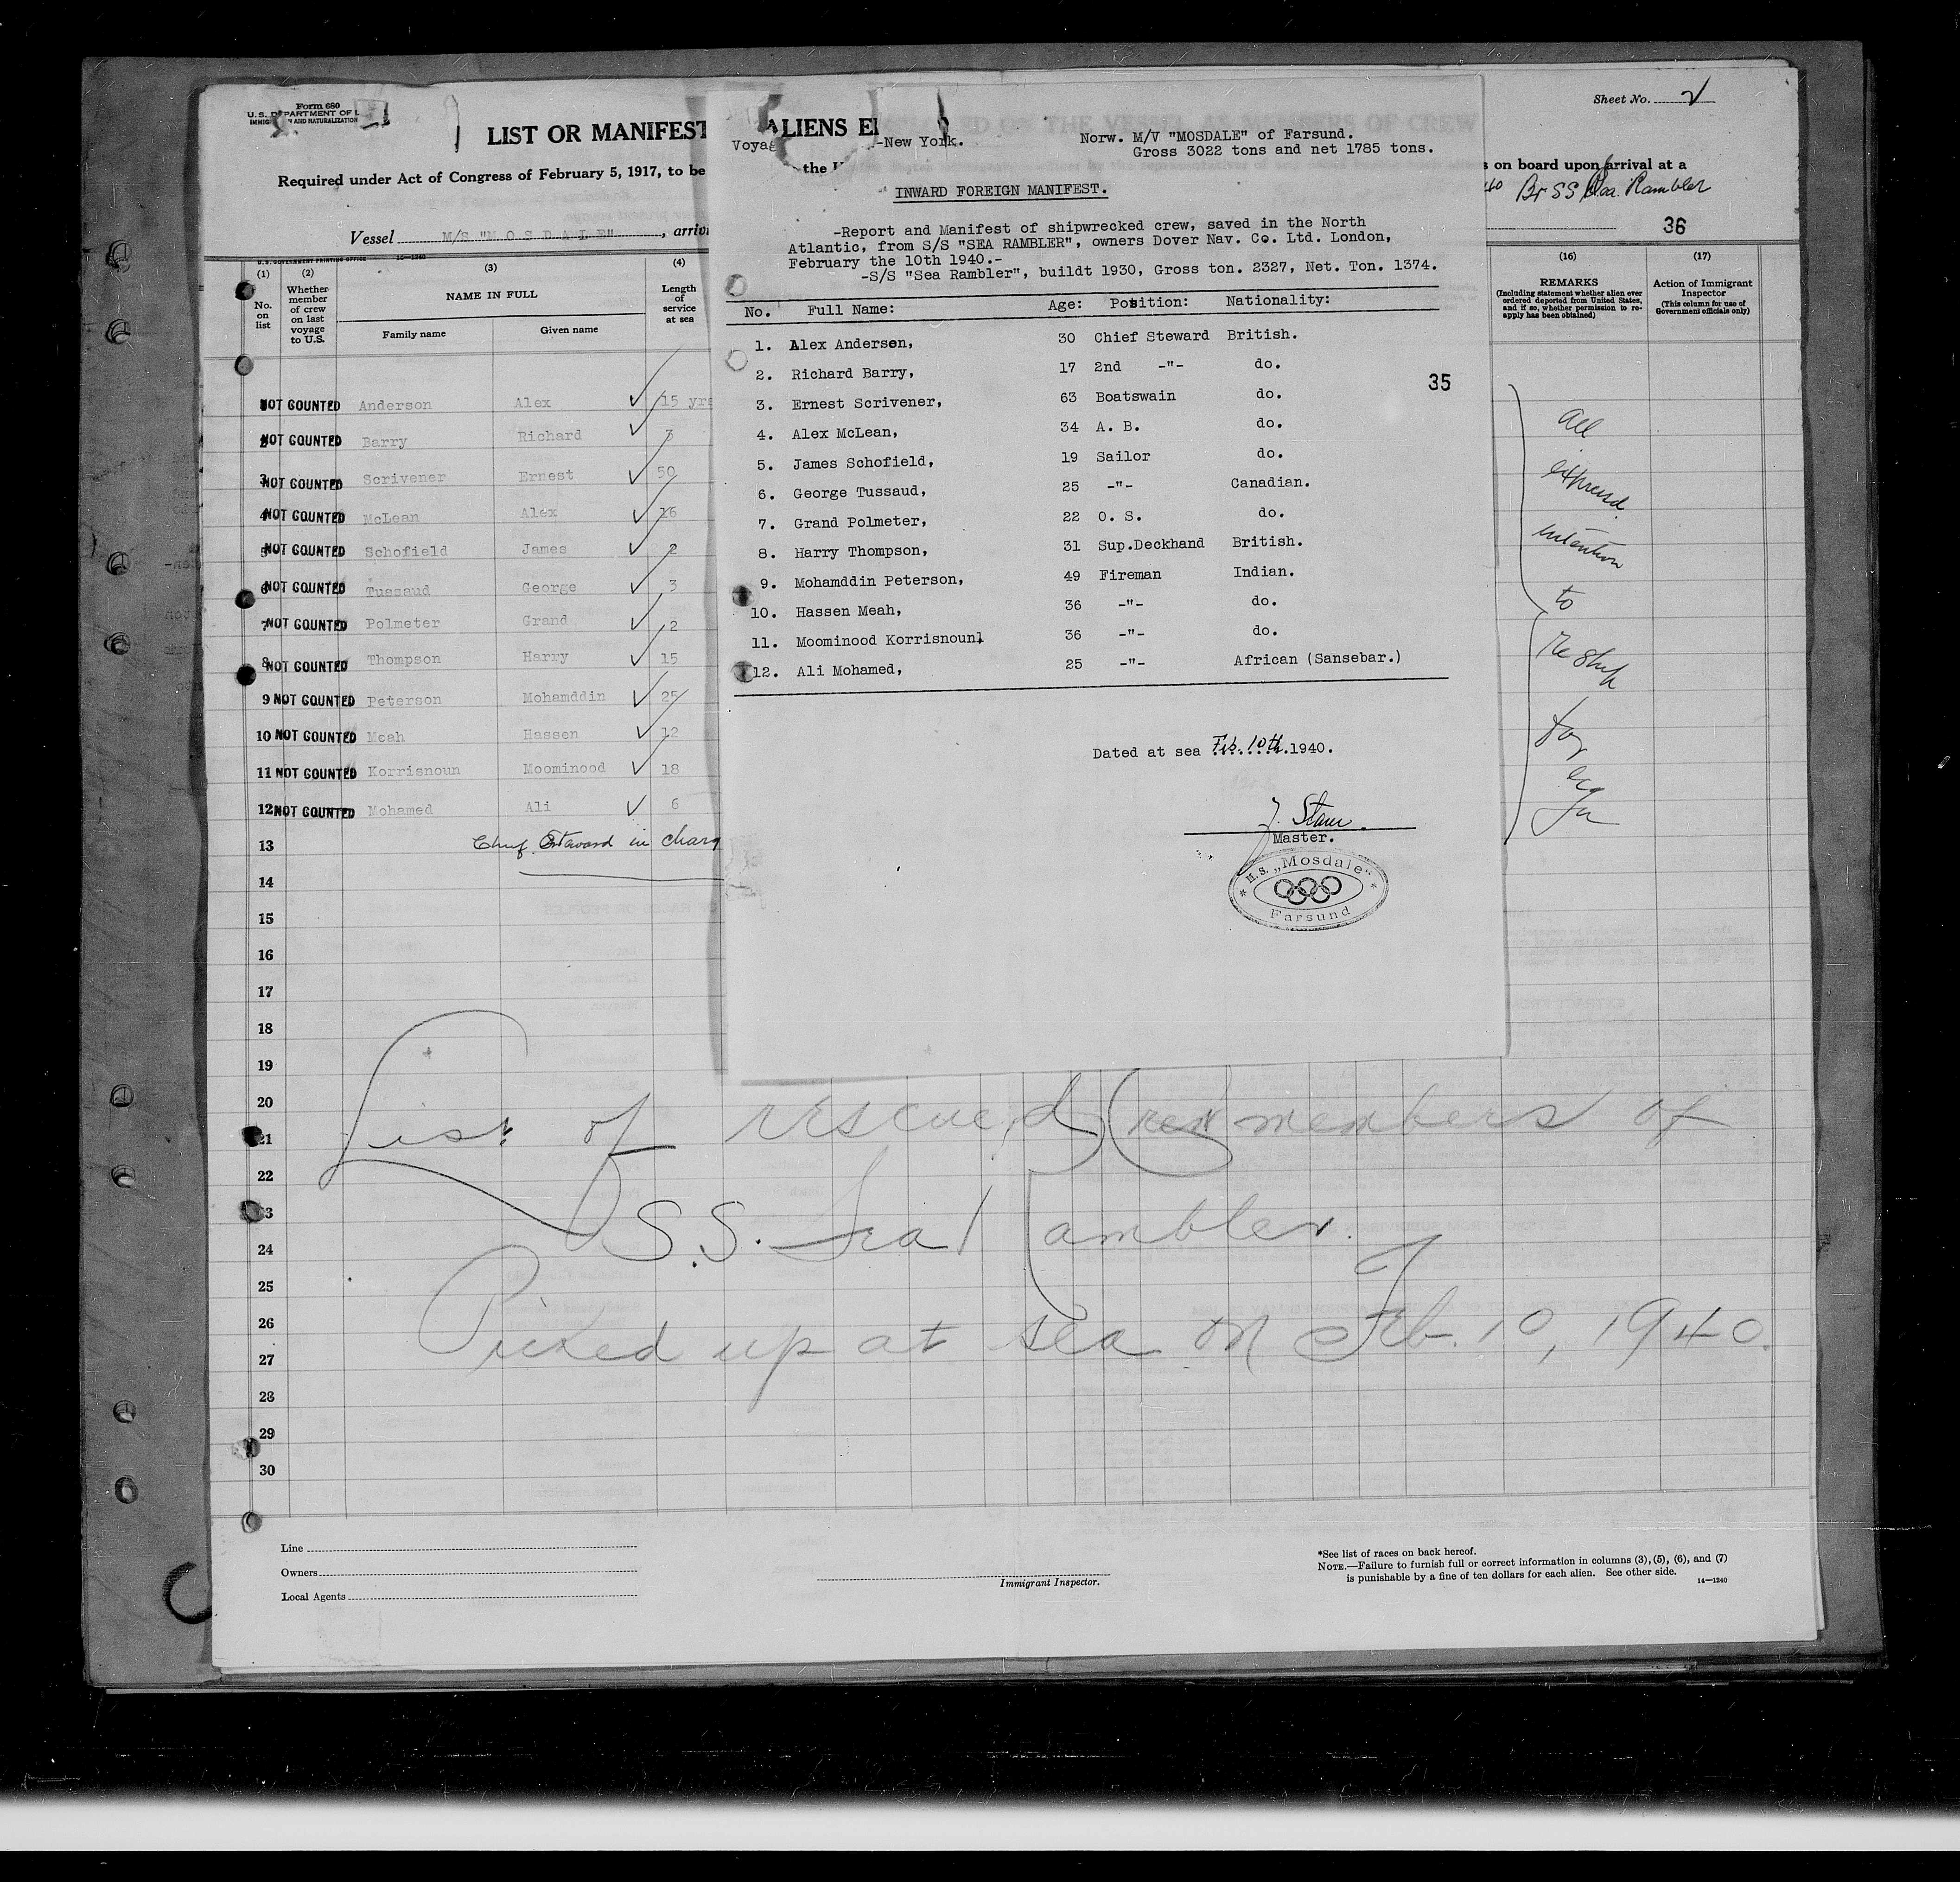 Form 680
U. S. DEPARTMENT OF L
IMMIG AND NATURALIZATION
LIST OR MANIFEST
ALIENS E
Required under Act of Congress of February 5, 1917, to be
the
s on board upon arrival at a
Sheet No. 2
Br SS Sea Rambler
36
Vessel M/S "M O S D A L E", arriv
U.S. GOVERNMENT PRINTING OFFICE 14—1240
(1) (2) (3) (4)
No. on list
Whether member of crew on last voyage to U.S.
NAME IN FULL
Family name Given name
Length of service at sea
(16) (17)
REMARKS
(Including statement whether alien ever ordered deported from United States, and if so, whether permission to re-apply has been obtained)
Action of Immigrant Inspector
(This column for use of Government officials only)
1 NOT COUNTED Anderson Alex ✓ 15 yrs
2 NOT COUNTED Barry Richard ✓ 3
3 NOT COUNTED Scrivener Ernest ✓ 50
4 NOT COUNTED McLean Alex ✓ 16
5 NOT COUNTED Schofield James ✓ 2
6 NOT COUNTED Tussaud George ✓ 3
7 NOT COUNTED Polmeter Grand ✓ 2
8 NOT COUNTED Thompson Harry ✓ 15
9 NOT COUNTED Peterson Mohamddin ✓ 25
10 NOT COUNTED Meah Hassen ✓ 12
11 NOT COUNTED Korrisnoun Moominood ✓ 18
12 NOT COUNTED Mohamed Ali ✓ 6
13 Chief Steward in charg
14
15
16
17
18
19
20
21
22
23
24
25
26
27
28
29
30
Voyag -New York.
Norw. M/V "MOSDALE" of Farsund.
Gross 3022 tons and net 1785 tons.
INWARD FOREIGN MANIFEST.
-Report and Manifest of shipwrecked crew, saved in the North
Atlantic, from S/S "SEA RAMBLER", owners Dover Nav. Co. Ltd. London,
February the 10th 1940.-
-S/S "Sea Rambler", buildt 1930, Gross ton. 2327, Net. Ton. 1374.
No. Full Name: Age: Position: Nationality:
1. Alex Andersen, 30 Chief Steward British.
2. Richard Barry, 17 2nd -"- do.
35
3. Ernest Scrivener, 63 Boatswain do.
4. Alex McLean, 34 A. B. do.
5. James Schofield, 19 Sailor do.
6. George Tussaud, 25 -"- Canadian.
7. Grand Polmeter, 22 O. S. do.
8. Harry Thompson, 31 Sup.Deckhand British.
9. Mohamddin Peterson, 49 Fireman Indian.
10. Hassen Meah, 36 -"- do.
11. Moominood Korrisnoun, 36 -"- do.
12. Ali Mohamed, 25 -"- African (Sansebar.)
Dated at sea Feb. 10th. 1940.
Master.
M.S. „Mosdale"
Farsund
All
expressed
intention
to
reship
for
List of rescued Crew members of
S.S. Sea Rambler.
Picked up at sea on Feb. 10, 1940.
Line
Owners
Local Agents
Immigrant Inspector.
*See list of races on back hereof.
NOTE.—Failure to furnish full or correct information in columns (3), (5), (6), and (7)
is punishable by a fine of ten dollars for each alien. See other side.
14—1240